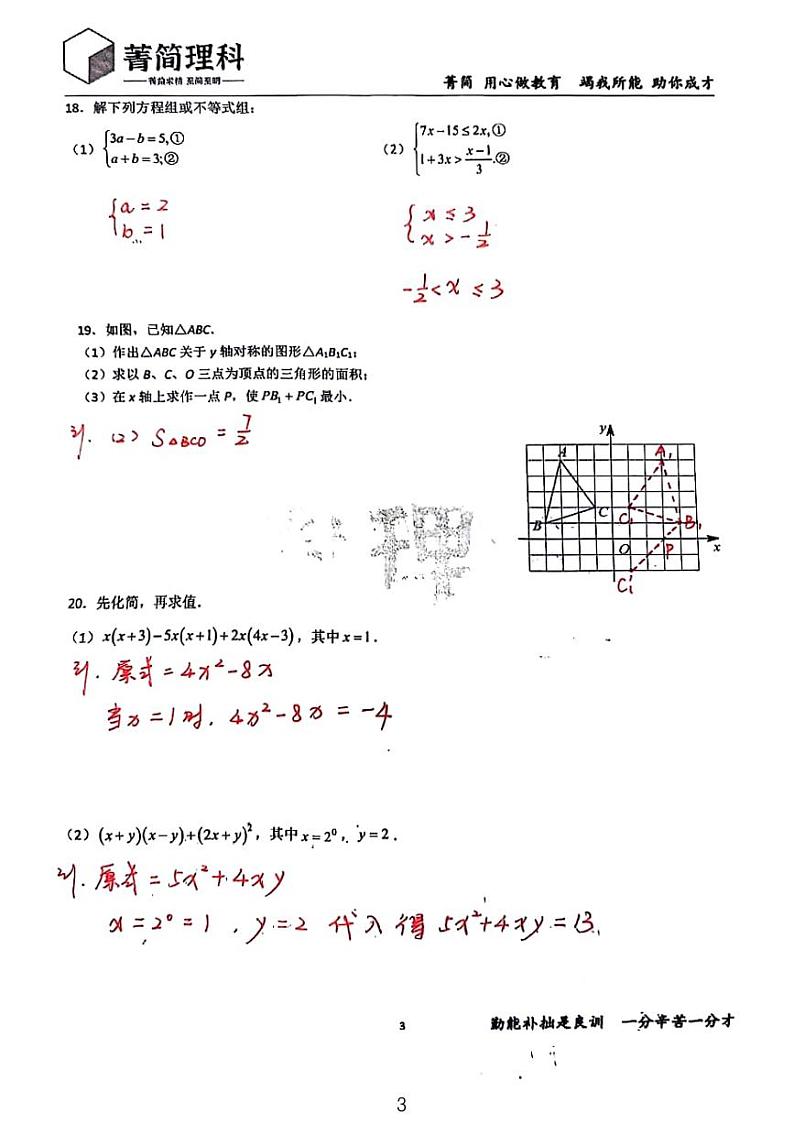 菁简理科
菁益求精 至简至明
菁简 用心做教育 竭我所能 助你成才
18. 解下列方程组或不等式组:
(1) {3a-b=5,① a+b=3;②
(2) {7x-15≤2x,① 1+3x>(x-1)/3.②
{a=2 b=1
{x≤3 x>-1/2
-1/2<x≤3
19. 如图, 已知△ABC.
(1) 作出△ABC 关于 y 轴对称的图形△A₁B₁C₁;
(2) 求以 B、C、O 三点为顶点的三角形的面积;
(3) 在 x 轴上求作一点 P, 使 PB₁+PC₁ 最小.
(2) S△BCO=7/2
y
A A₁
B C C₁ B₁
O P x
C₁
20. 先化简, 再求值.
(1) x(x+3)-5x(x+1)+2x(4x-3), 其中 x=1.
原式=4x²-8x
当x=1时, 4x²-8x=-4
(2) (x+y)(x-y)+(2x+y)², 其中 x=2⁰, y=2.
原式=5x²+4xy
x=2⁰=1, y=2 代入得 5x²+4xy=13.
3 勤能补拙是良训 一分辛苦一分才
3